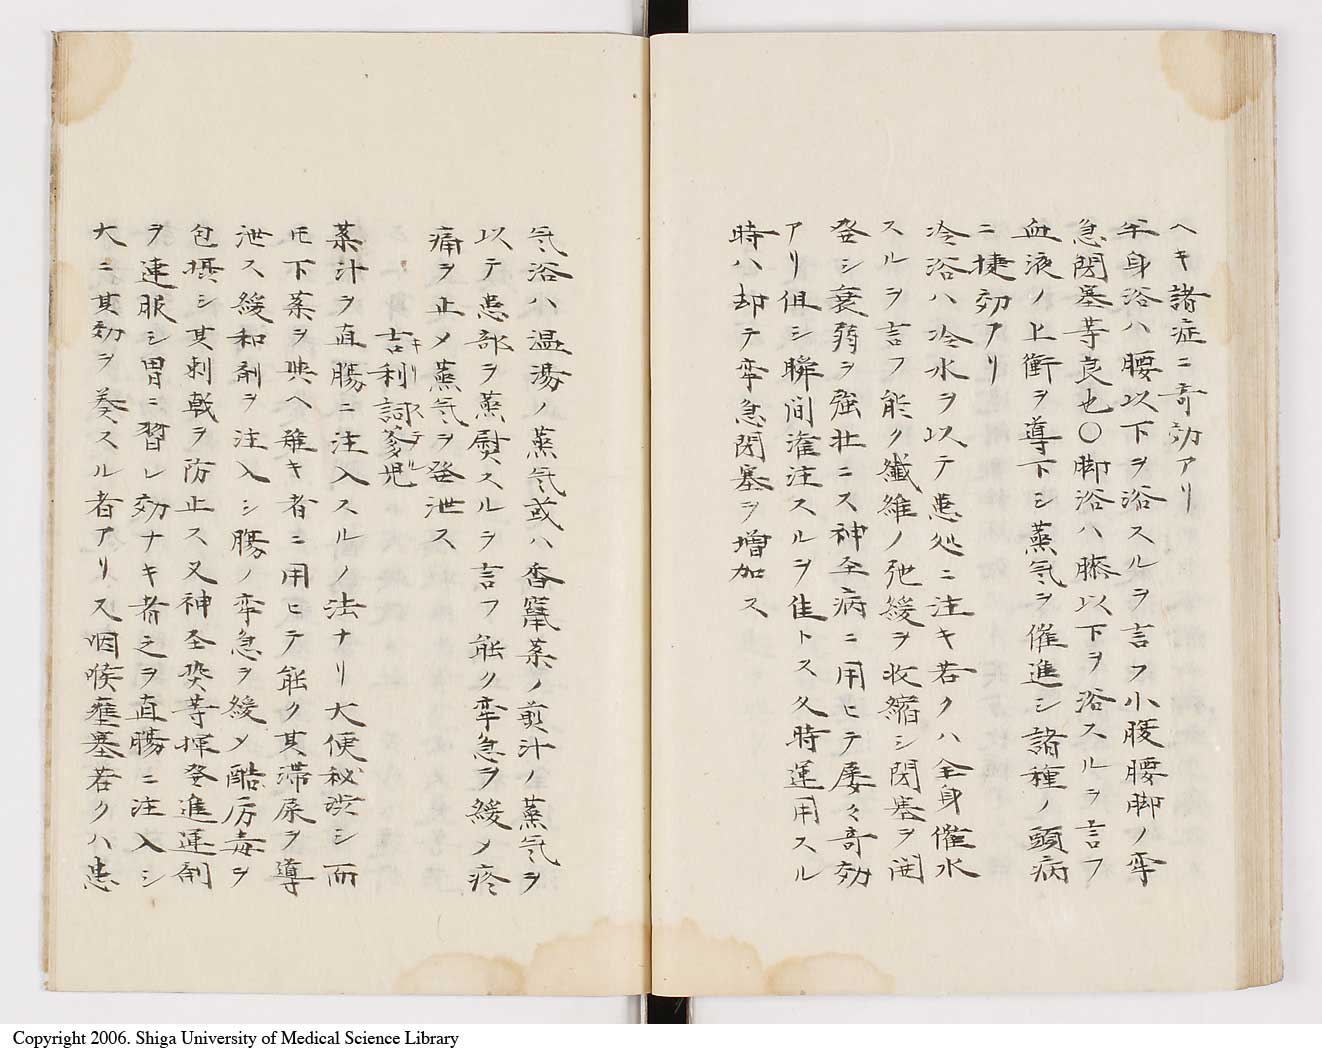 ヘキ諸症ニ奇効アリ
半身浴ハ腰以下ヲ浴スルヲ言フ小腹腰脚ノ牽
急閉塞等良也〇脚浴ハ膝以下ヲ浴スルヲ言フ
血液ノ上衝ヲ導下シ蒸気ヲ催進シ諸種ノ頭病
ニ捷効アリ
冷浴ハ冷水ヲ以テ患処ニ注キ若クハ全身催水
スルヲ言フ能ク纖維ノ弛緩ヲ收縮シ閉塞ヲ開
発シ衰弱ヲ強壮ニス神圣病ニ用ヒテ屡々奇効
アリ但シ瞬间潅注スルヲ佳トス久時運用スル
時ハ却テ牽急閉塞ヲ増加ス
気浴ハ温湯ノ蒸気或ハ香竄薬ノ煎汁ノ蒸気ヲ
以テ患部ヲ蒸熨スルヲ言フ能ク牽急ヲ緩メ疼
痛ヲ止メ蒸気ヲ発泄ス
吉利詞爹児
キリステル
薬汁ヲ直腸ニ注入スルノ法ナリ大便秘渋シ而
モ下薬ヲ与ヘ難キ者ニ用ヒテ能ク其滞屎ヲ導
泄ス緩和剤ヲ注入シ腸ノ牽急ヲ緩メ酷厉毒ヲ
包摂シ其刺戟ヲ防止ス又神圣焮等揮発進運剤
ヲ連服シ胃ニ習レ効ナキ者之ヲ直腸ニ注入シ
大ニ其効ヲ奏スル者アリ又咽喉壅塞若クハ患
Copyright 2006. Shiga University of Medical Science Library